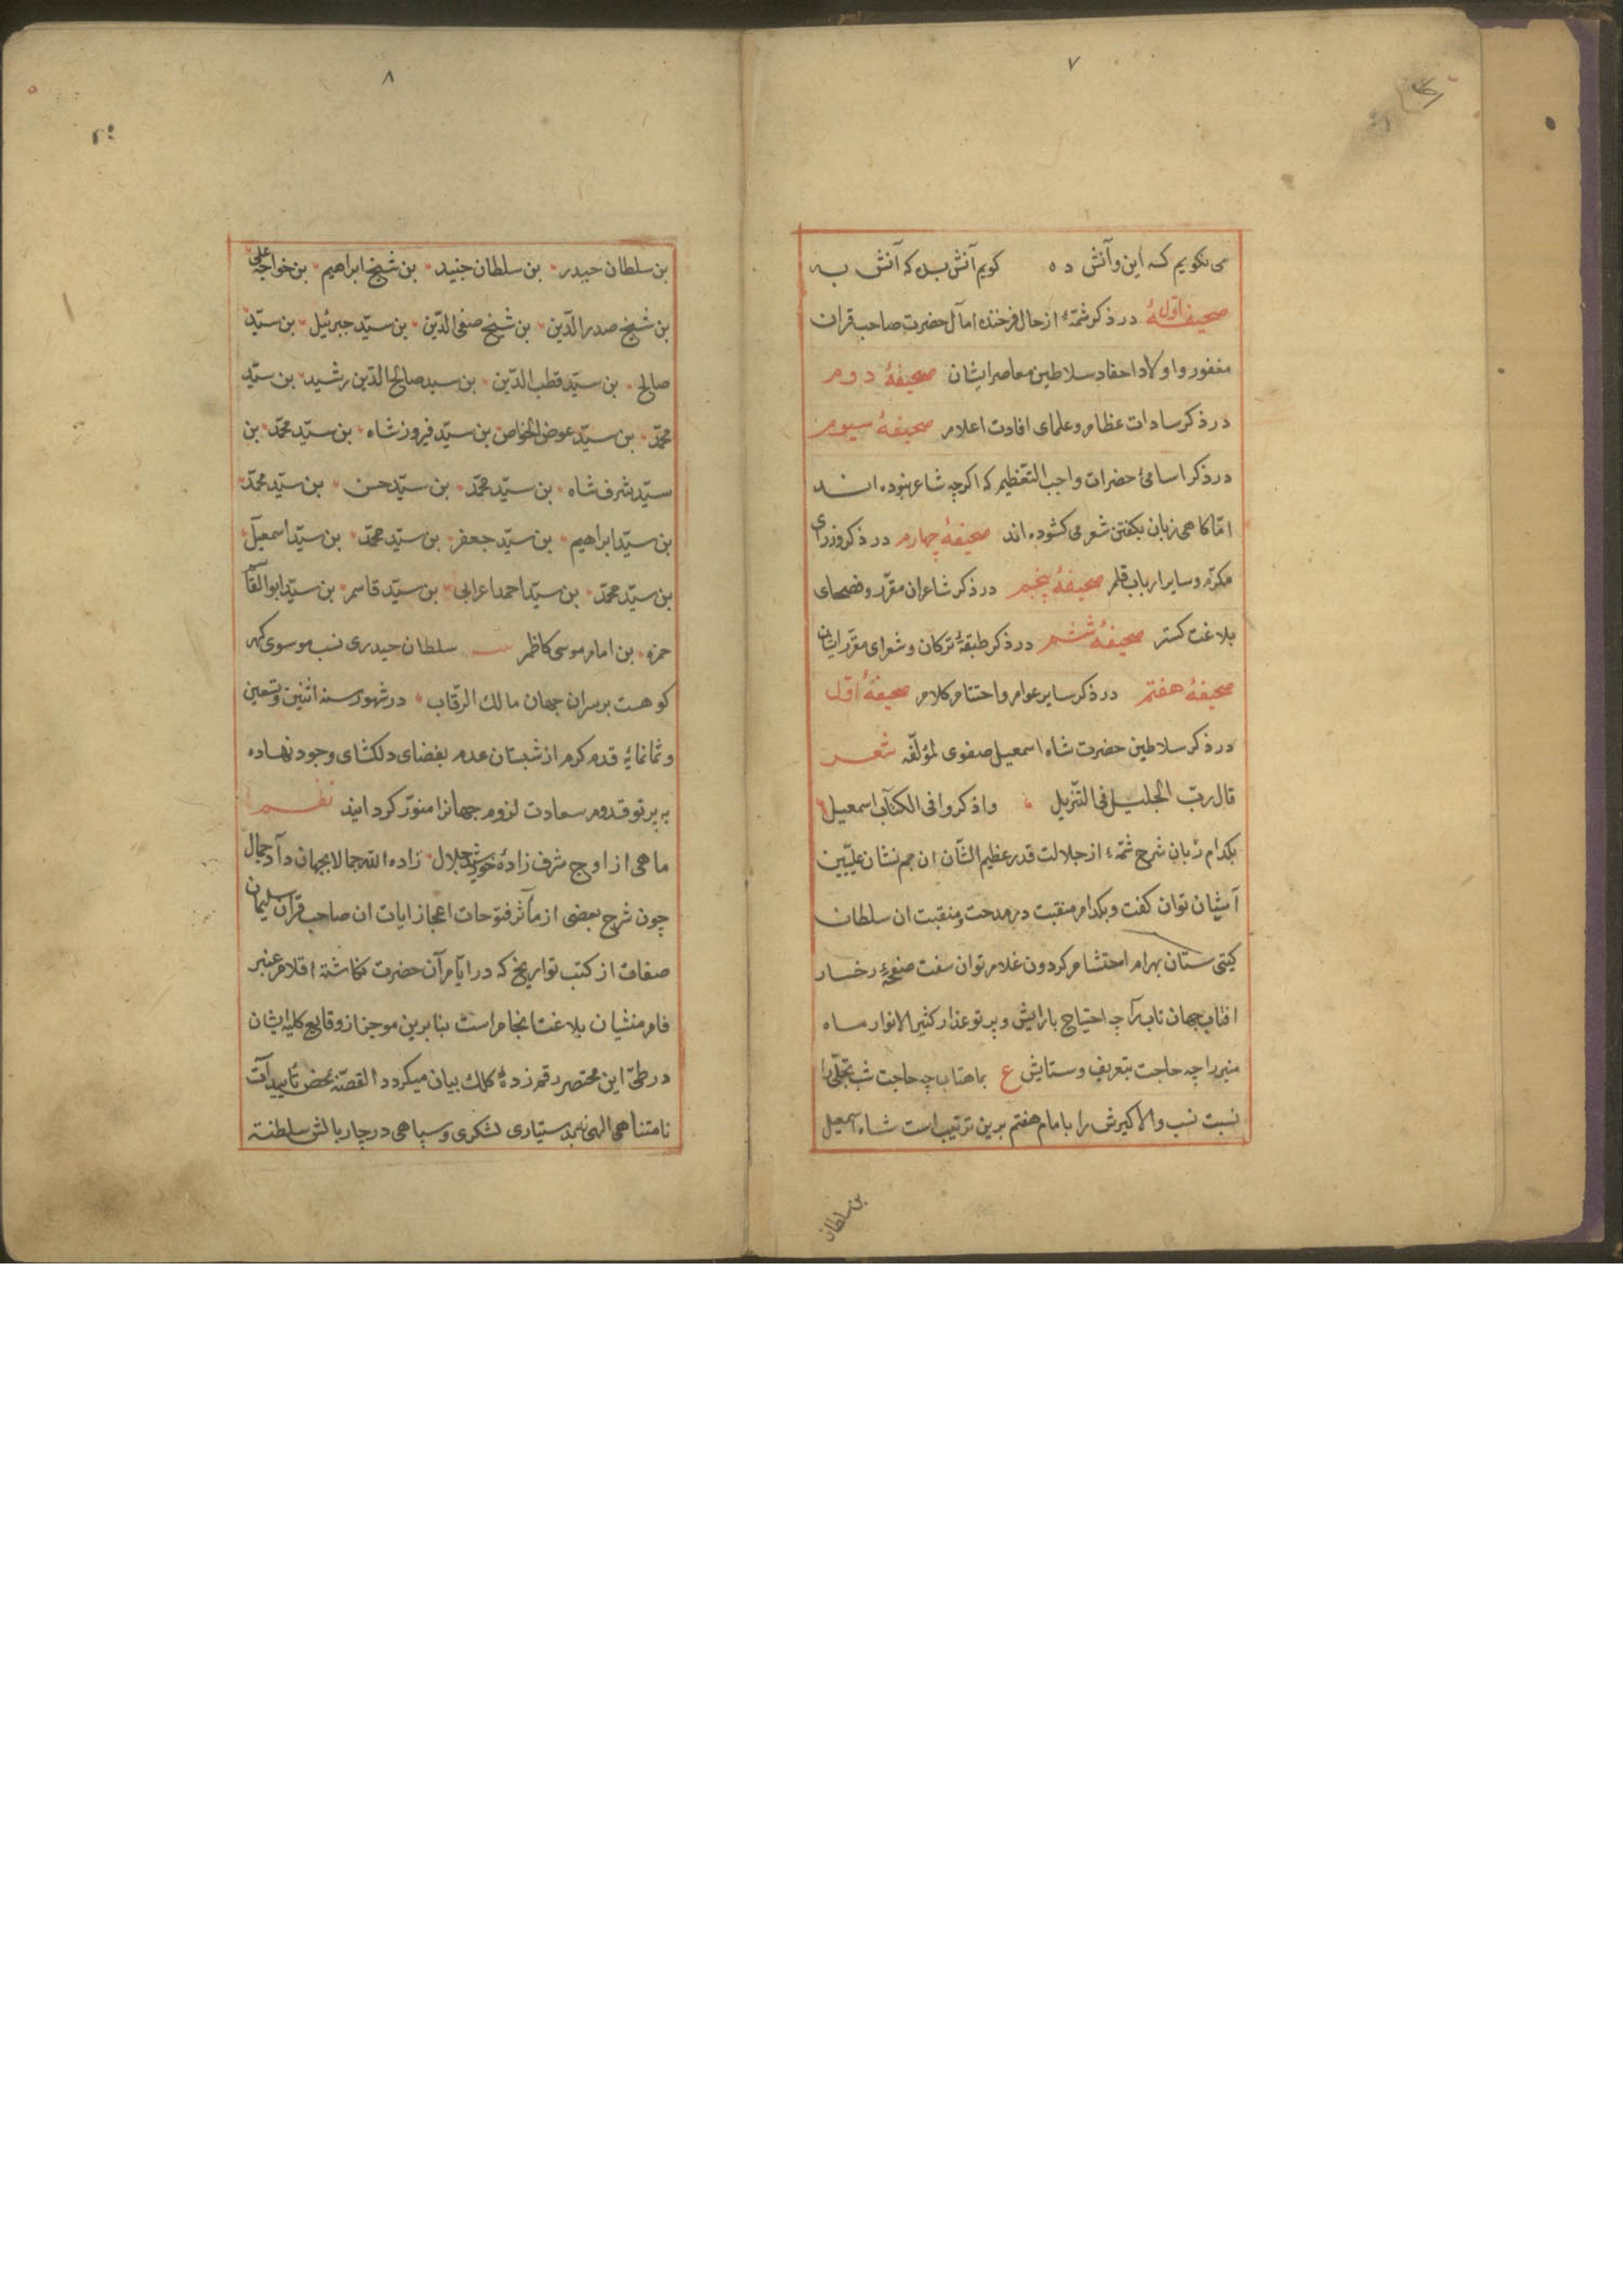 ۷
می نکویم که این وآنش ده کویم آنش بده که آنش به
صحیفهٔ اوّل در ذکر شمّهٔ از حال فرخنده امآل حضرت صاحب قران
مغفور و اولاد احفاد سلاطین معاصر ایشان صحیفهٔ دوم
در ذکر سادات عظام و علمای افادت اعلام صحیفهٔ سیوم
در ذکر اسامئ حضرات واجب التعظیم که اکرچه شاعر نبوده اند
امّا کاهی زبان بکفتن شعر می کشوده اند صحیفهٔ چهارم در ذکر وزرای
مکرّم و سایر ارباب قلم صحیفهٔ پنجم در ذکر شاعران مقرّر و فصحای
بلاغت کستر صحیفهٔ ششم در ذکر طبقهٔ ترکان و شعرای مقرّر ایشان
صحیفهٔ هفتم در ذکر سایر عوام و اختتام کلام صحیفهٔ اوّل
در ذکر سلاطین حضرت شاه اسمعیل صفوی لمؤلّفه شعر
قال ربّ الجلیل فی التنزیل واذکروا فی الکتاب اسمعیل
بکدام زبان شرح شمّهٔ از جلالت قدر عظیم الشّان ان جم نشان علیّین
آشیان توان کفت و بکدام منقبت در مدحت و منقبت ان سلطان
کیتی ستان بهرام احتشام کردون غلام توان سفت صفحهٔ رخسار
افتاب جهان تاب را چه احتیاج بارایش و پرتو عذار کثیر الانوار ماه
منیر را چه حاجت بتعریف و ستایش ع بماهتاب چه حاجت شب تجلّی را
نسبت نسب والاکیرش را بامام هفتم برین ترتیب است شاه اسمعیل
بن سلطان
۸
بن سلطان حیدر بن سلطان جنید بن شیخ ابراهیم بن خواجه علی
بن شیخ صدر الدّین بن شیخ صفی الدّین بن سیّد جبرئیل بن سیّد
صالح بن سیّد قطب الدّین بن سید صالح الدّین رشید بن سیّد
محمّد بن سیّد عوض الخواص بن سیّد فیروز شاه بن سیّد محمّد بن
سیّد شرف شاه بن سیّد محمّد بن سیّد حسن بن سیّد محمّد
بن سیّد ابراهیم بن سیّد جعفر بن سیّد محمّد بن سیّد اسمعیل
بن سیّد محمّد بن سیّد احمد اعرابی بن سیّد قاسم بن سیّد ابو القا
حمزه بن امام موسی کاظم سلطان حیدری نسب موسوی کهر
کو هست بر سران جهان مالك الرّقاب در شهور سنه اثنین و تسعین
و ثمانمایه قدم کرم از شبستان عدم بفضای دلکشای وجود نهاده
به پرتو قدوم سعادت لزوم جهانرا منوّر کردانید نظم
ماهی از اوج شرف زادهٔ خورشید جلال زاده الله جمالا بجهان داد جمال
چون شرح بعضی از مآثر فتوحات اعجاز ایات ان صاحب قران سلیمان
صفات از کتب تواریخ که در ایّام آن حضرت نکاشتهٔ اقلام عنبر
فام منشیان بلاغت انجام است بنا برین موجز از وقایع کلیه ایشان
در طیّ این مختصر رقم زدهٔ کلك بیان میکردد القصّه بمحض تأییدات
نامتناهی الهی نه بدستیاری لشکری و سپاهی در چار بالش سلطنت